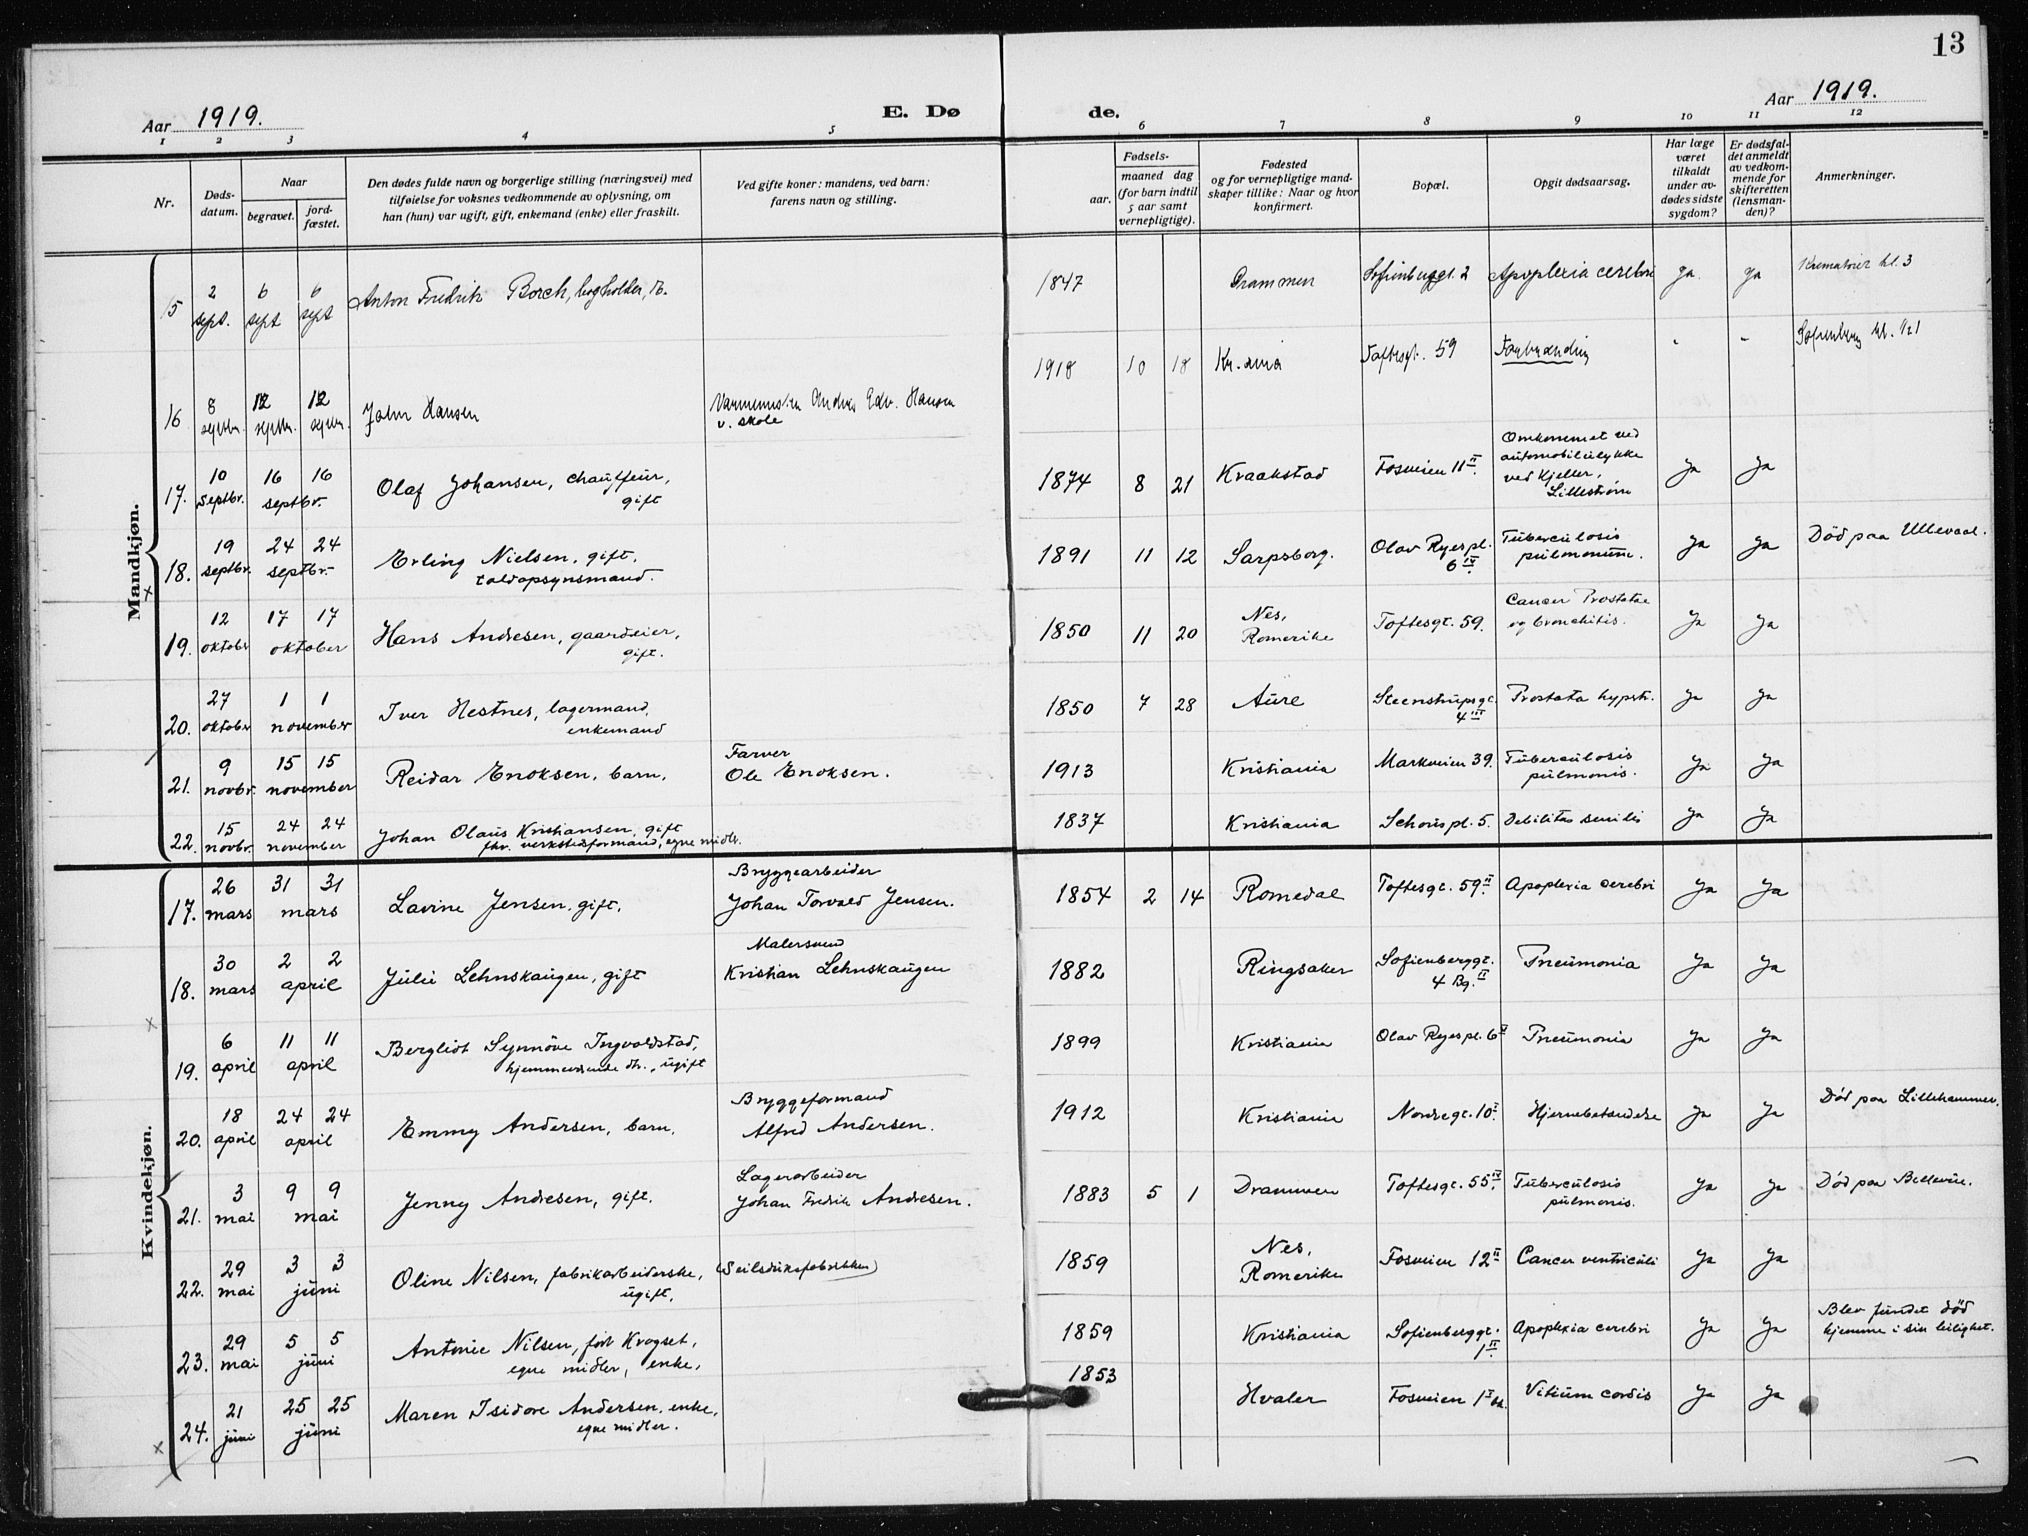 13
Aar 1919.
E. Dø de.
Aar 1919.
1 2 3 4 5 6 7 8 9 10 11 12
Nr.
Døds-
datum.
Naar
begravet.
jord-
fæstet.
Den dødes fulde navn og borgerlige stilling (næringsvei) med
tilføielse for voksnes vedkommende av oplysning, om
han (hun) var ugift, gift, enkemand (enke) eller fraskilt.
Ved gifte koner: mandens, ved barn:
farens navn og stilling.
Fødsels-
aar.
maaned dag
(for barn indtil
5 aar samt
vernepligtige).
Fødested
og for vernepligtige mand-
skaper tillike: Naar og hvor
konfirmert.
Bopæl.
Opgit dødsaarsag.
Har læge
været
tilkaldt
under av-
dødes sidste
sygdom?
Er dødsfal-
det anmeldt
av vedkom-
mende for
skifteretten
(lensman-
den)?
Anmerkninger.
Mandkjøn.
15 2 sept. 6 sept 6 sept Anton Fredrik Borch, bogholder, 1847 Drammen Sofienberggt. 2 Apoplexia cerebri ja ja Krematoriet kl. 3
16 8 septbr. 12 septbr. 12 septbr. John Hansen
Andreas Edv. Hansen
v. skole
1918 10 18 Kr.ania Toftesgt. 59 Forbrænding " " Sofienberg kl. 1/21
17. 10 septbr. 16 16 septbr. Olaf Johansen, chauffeur,
gift
1874 8 21 Kraakstad Fosveien 11 II.
Omkommet ved
automobilulykke
ved Kjeller,
Lillestrøm
Ja Ja
18. 19 septbr. 24 24 septbr. Erling Nielsen, gift,
toldopsynsmand.
1891 11 12 Sarpsborg. Olav Ryespl.
6 IV.
Tuberculosis
pulmonum.
Ja Ja Død paa Ullevaal.
19. 12 oktober 17 17 oktober Hans Andresen, gaardeier,
gift.
1850 11 20 Nes,
Romerike
Toftesgt. 59. Cancer Prostatae
og bronchitis.
Ja Ja
20. 27 oktober 1 1 november Iver Hestnes, lagermand,
enkemand
1850 7 28 Aure Steenstrupsgt.
4 III
Prostata hypstr. Ja Ja
21. 9 novbr. 15 15 november Reidar Enoksen, barn.
Farver
Ole Enoksen.
1913 Kristiania Markveien 39. Tuberculosis
pulmonis.
Ja Ja
22. 15 novbr. 24 24 november Johan Olaus Kristiansen, gift
fhv. verkstedformand, egne midler.
1837 Kristiania Schouspl. 5. Debilitas senilis Ja Ja
Kvindekjøn.
17. 26 mars 31 31 mars Lavine Jensen, gift.
Bryggearbeider
Johan Torvald Jensen.
1854 2 14 Romedal Toftesgt. 59 II Apoplexia cerebri Ja Ja
18. 30 mars 2 2 april Julie Lehnskaugen, gift
Malersvend
Kristian Lehnskaugen
1882 Ringsaker Sofienberggt.
4 Bg. II
Pneumonia Ja Ja
19. 6 april 11 11 april Bergliot Synnöve Ingvoldstad,
hjemmeværende dtr., ugift
1899 Kristiania Olav Ryespl. 6 V Pneumonia Ja Ja
20. 18 april 24 24 april Emmy Andersen, barn.
Bryggeformand
Alfred Andersen.
1912 Kristiania Nordregt. 10 I Hjernebetændelse Ja Ja Död paa Lillehammer.
21. 3 mai 9 9 mai Jenny Andresen, gift.
Lagerarbeider
Johan Fredrik Andresen.
1883 5 1 Drammen Toftesgt. 55 IV. Tuberculosis
pulmonis.
Ja Ja Död paa Bellevue.
22. 29 mai 3 3 juni Oline Nilsen, fabrikarbeiderske,
ugift.
(Seilduksfabrikken)
1859 Nes,
Romerike
Fosveien 12 II Cancer ventriculi Ja Ja
23. 29 mai 5 5 juni Antonie Nilsen, født Krogset,
egne midler, enke,
1859 Kristiania Sofienberggt.
1 II.
Apoplexia cerebri Ja Ja Blev fundet död
hjemme i sin leilighet.
24. 21 juni 25 25 juni Maren Isidore Andersen, enke,
egne midler.
1853 Hvaler Fosveien 1 I Vitium cordis Ja Ja